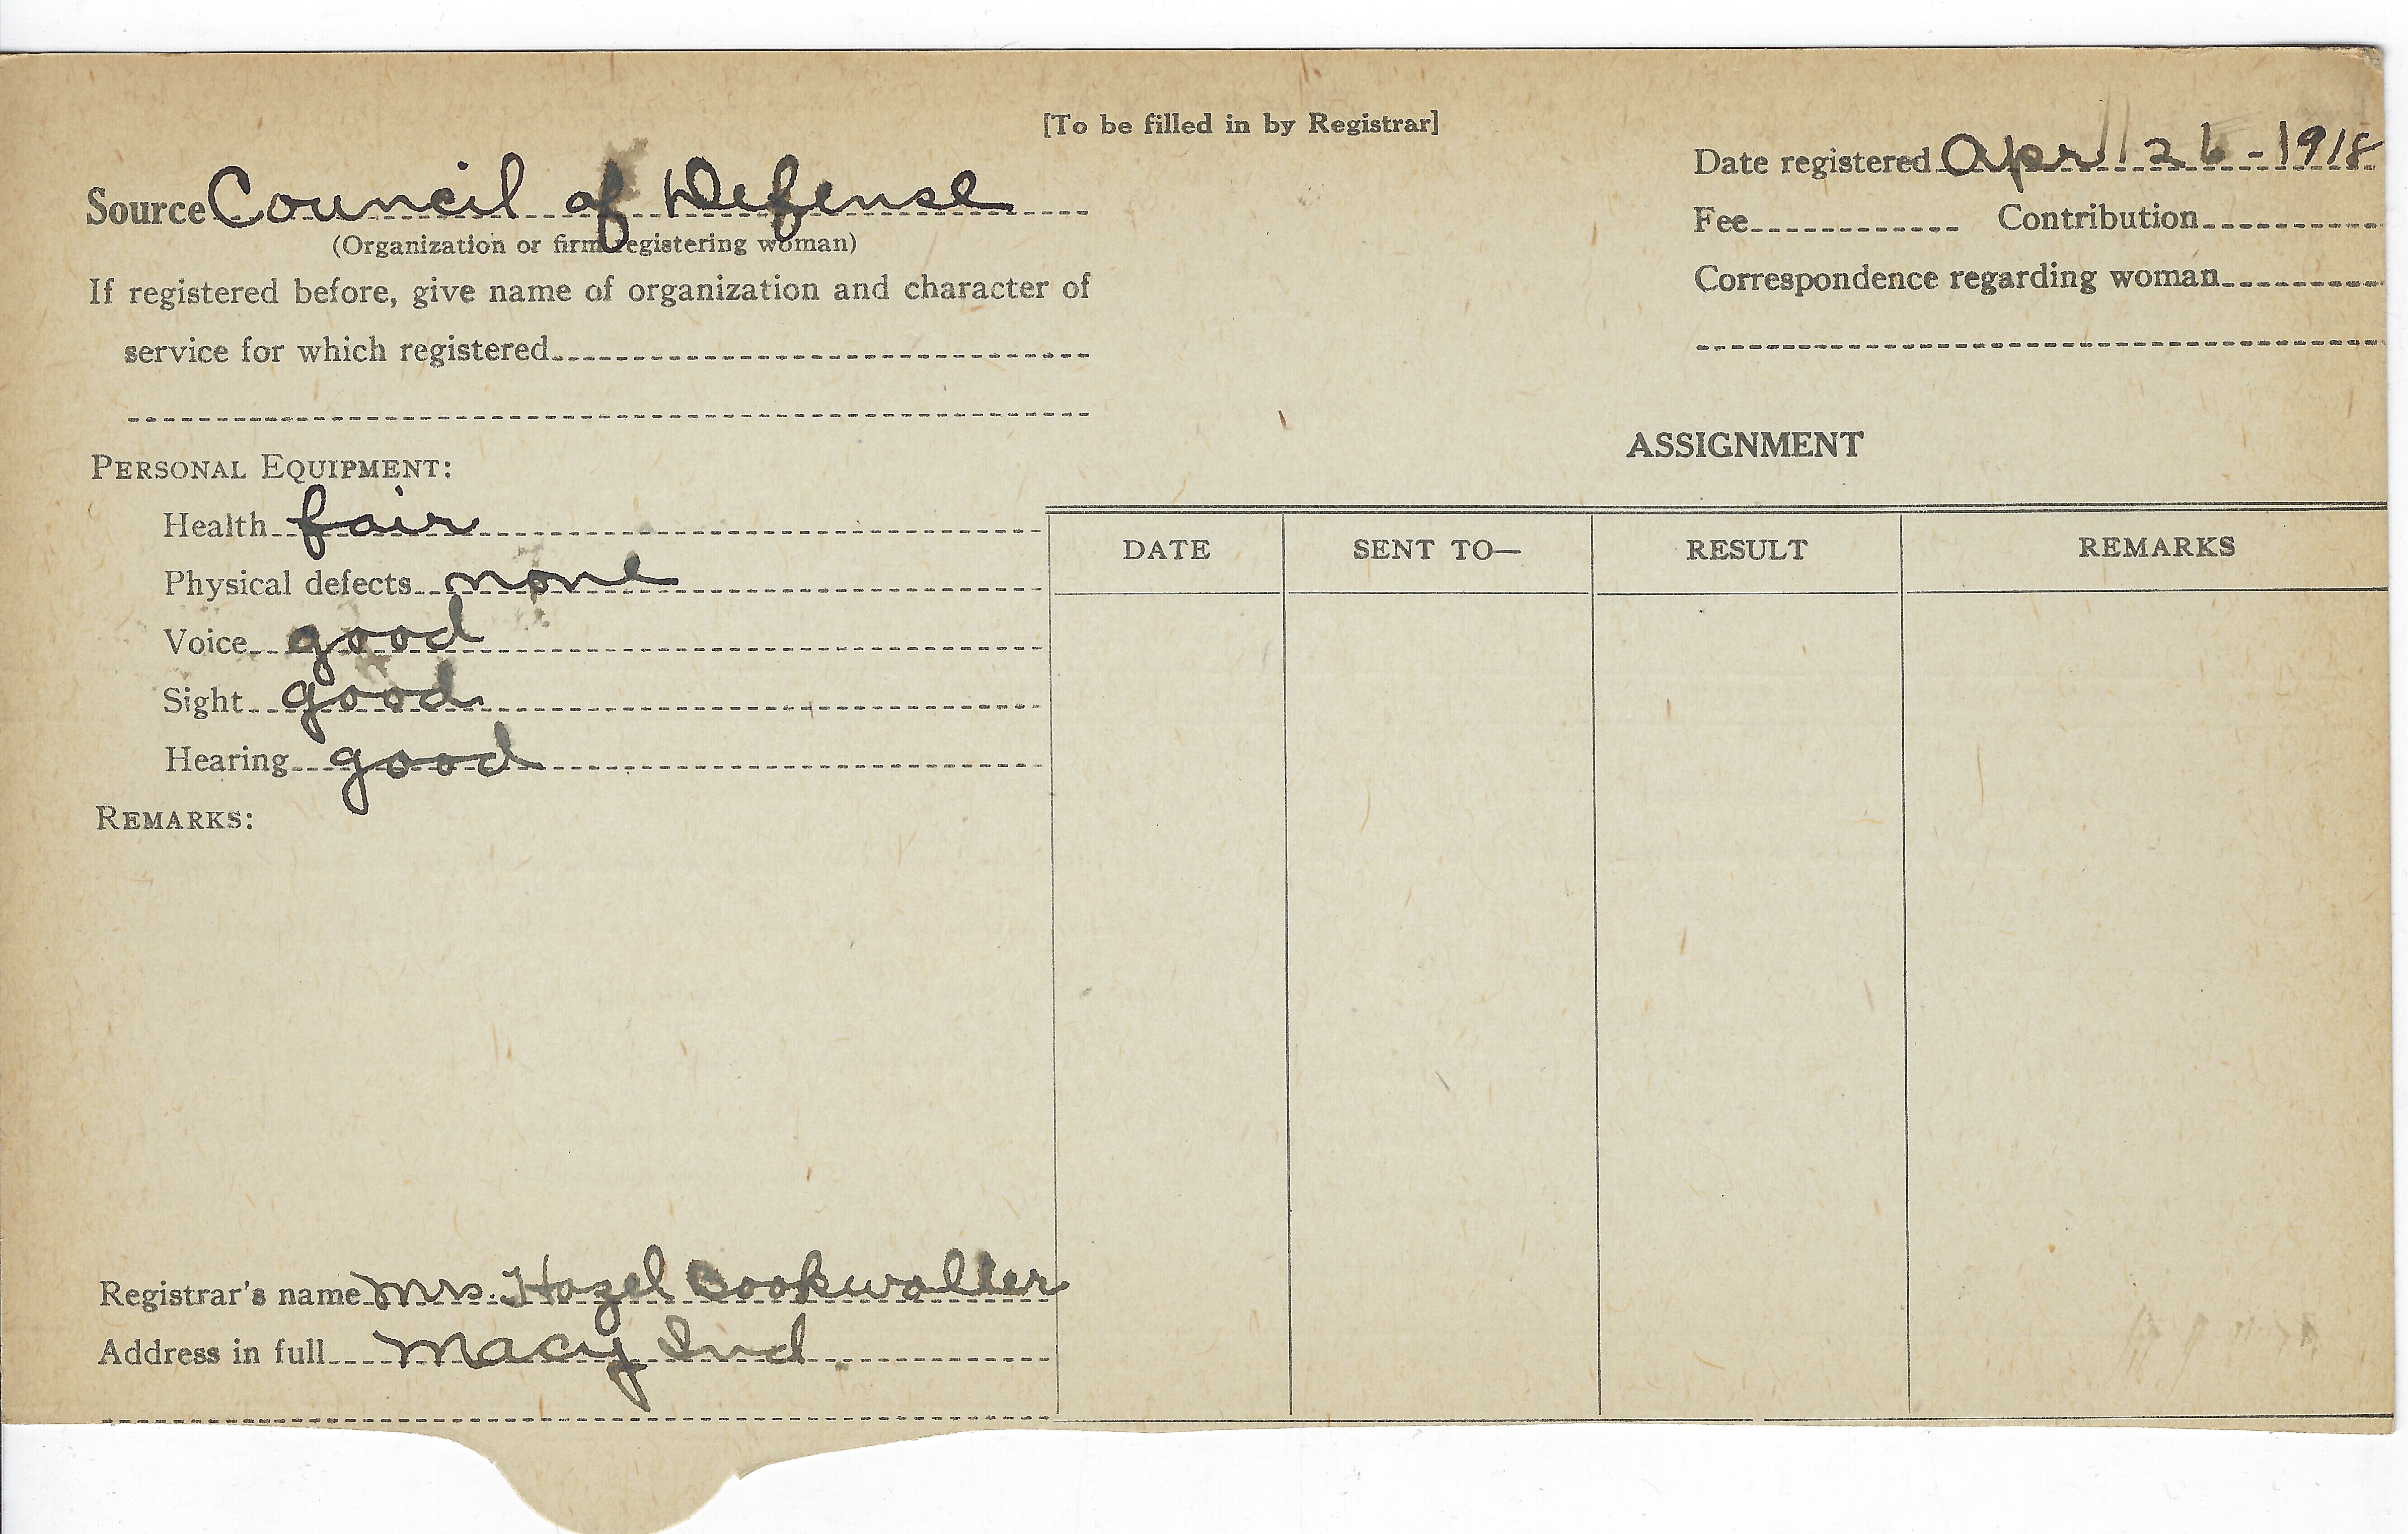 [To be filled in by Registrar]
Source Council of Defense
(Organization or firm registering woman)
Date registered April 26-1918
Fee Contribution
Correspondence regarding woman
If registered before, give name of organization and character of
service for which registered
ASSIGNMENT
PERSONAL EQUIPMENT:
Health fair
Physical defects none
Voice good
Sight good
Hearing good
DATE SENT TO— RESULT REMARKS
REMARKS:
Registrar's name Mrs. Hazel Bookwalter
Address in full Macy Ind